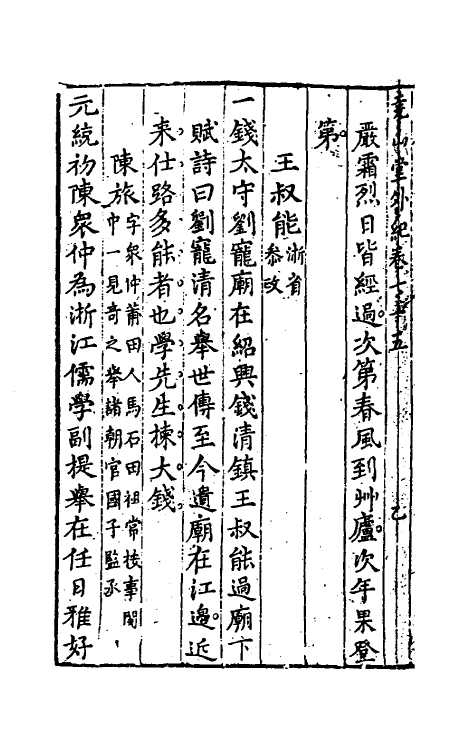 堯山堂外紀卷七十五 乙
嚴霜烈日皆經過次第春風到艸廬次年果登
第
王叔能浙省叅政
一錢太守劉寵廟在紹興錢清鎮王叔能過廟下
賦詩曰劉寵清名舉世傳至今遺廟在江邊近
来仕路多能者也學先生揀大錢
陳旅字衆仲莆田人馬石田祖常按事閩中一見奇之舉諸朝官國子監丞
元統初陳衆仲為浙江儒學副提舉在任日雅好